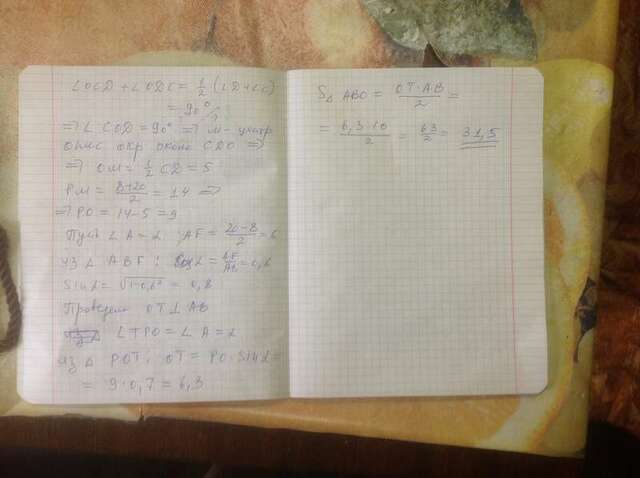 ∠OCD + ∠ODC = 1/2 (∠D + ∠C)
= 90°
⇒ ∠ COD = 90° ⇒ M - центр
опис окр около CDO ⇒
⇒ OM = 1/2 CD = 5
PM = (8+20)/2 = 14 ⇒
⇒ PO = 14 - 5 = 9
Пусть ∠ A = α AF = (20-8)/2 = 6
из Δ ABF: cos α = AF/AB = 0,6
Sin α = √(1-0,6²) = 0,8
Проведем OT ⊥ AB
∠TPO = ∠ A = α
из Δ POT: OT = PO · Sin α =
= 9 · 0,7 = 6,3
SΔ ABO = (OT · AB)/2 =
= (6,3 · 10)/2 = 63/2 = 31,5